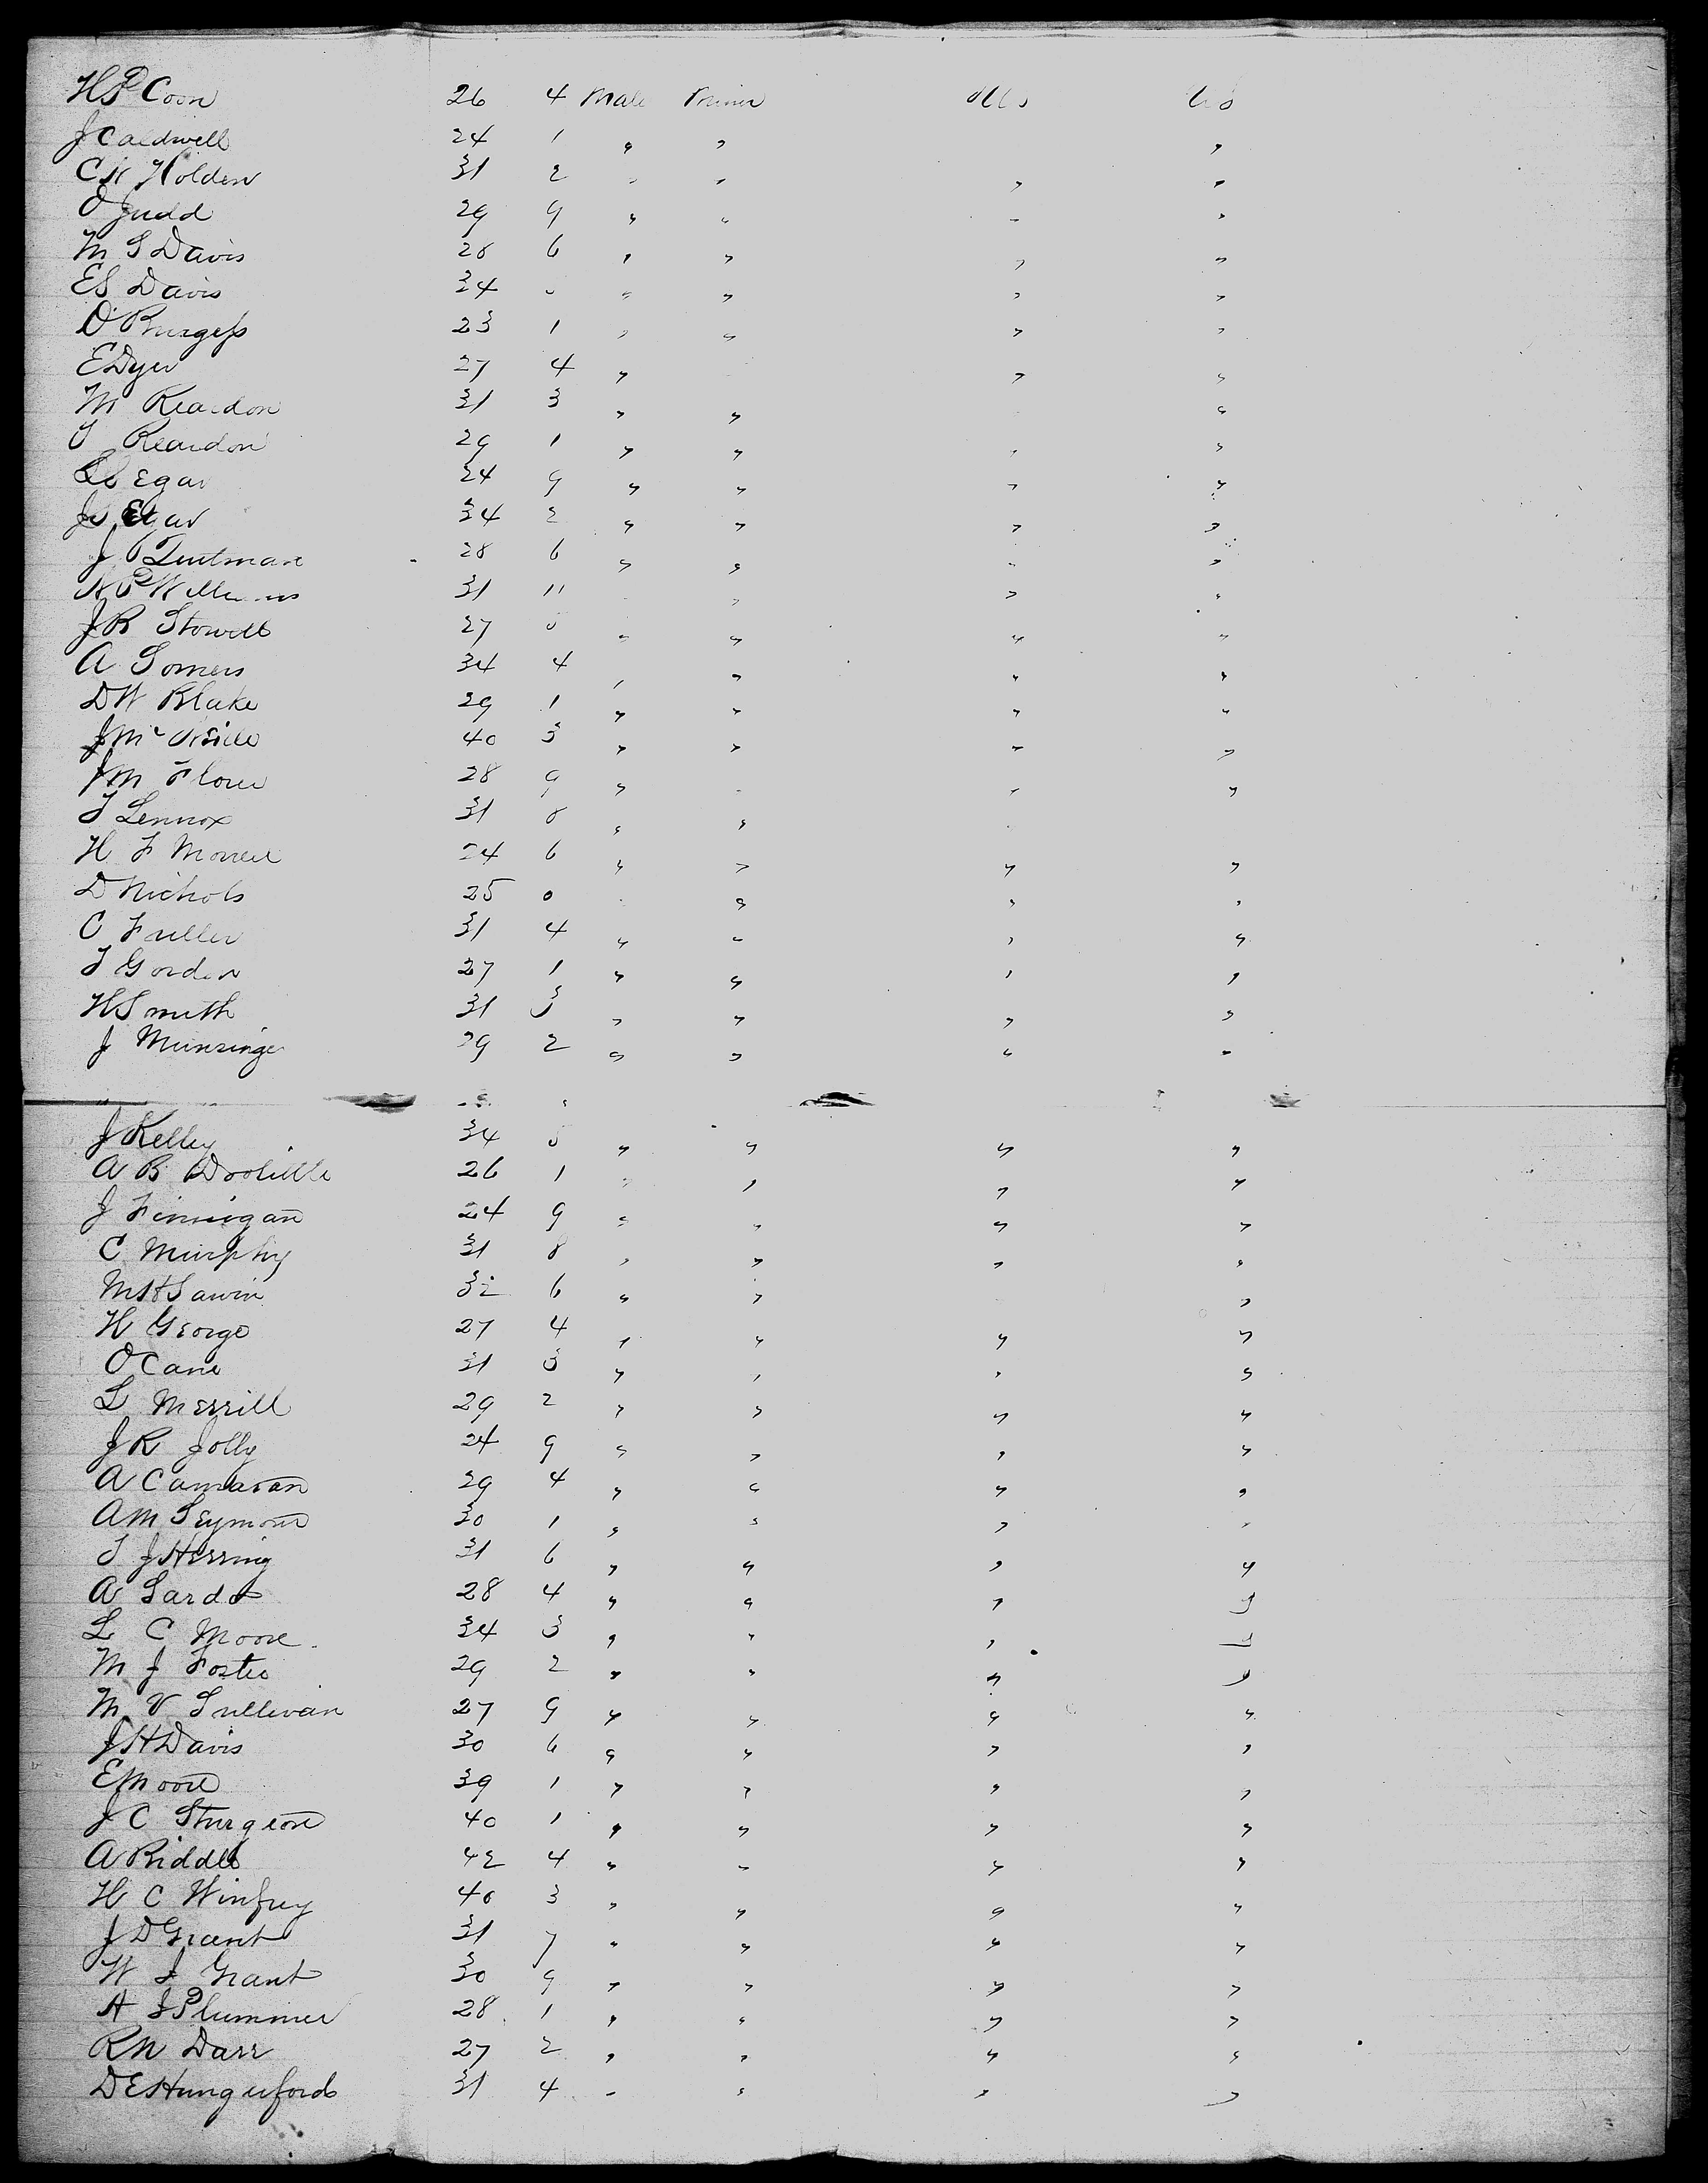 HP Coon 26 4 Male Miner US US
J Caldwell 24 1 " " "
C W Holden 31 2 " " " "
O Judd 29 9 " " " "
M S Davis 28 6 " " " "
ES Davis 34 " " " "
D Burgess 23 1 " " " "
E Dyer 27 4 " " "
M Reardon 31 3 " " "
T Reardon 29 1 " " " "
Egar 24 9 " " " "
Js Egar 34 2 " " " "
J 28 6 " " " "
31 11 " " "
JR Stowell 27 " " " "
A Somers 34 4 " " " "
DW Blake 29 1 " " " "
J Mc 40 3 " " " "
JM Flower 28 9 " " " "
T Lennox 31 8 " "
H F Morrell 24 6 " " " "
D Nichols 25 0 " " "
C Fuller 31 4 " " " "
T Gorden 27 1 " " " "
H Smith 31 3 " " " "
J Munsinger 29 2 " " " "
J Kelley 34 " " " "
A B Doolittle 26 1 " " " "
J Finnigan 24 9 " " " "
C Murphy 31 8 " " " "
MH Sawin 32 6 " " "
H George 27 4 " " " "
O Cane 31 3 " " " "
L Merrill 29 2 " " " "
JR Jolly 24 9 " " " "
A Camaran 29 4 " " " "
AM Seymour 30 1 " " " "
T J Herring 31 6 " " " "
A Sardot 28 4 " " " "
L C Moore 34 3 " " " "
M J Foster 29 2 " " " "
M V Sullivan 27 9 " " " "
JH Davis 30 6 " " " "
E Moore 39 1 " " " "
J C Sturgeon 40 1 " " " "
A Riddle 42 4 " " " "
H C Winfrey 40 3 " " " "
J D Grant 31 7 " " " "
W J Grant 30 9 " " " "
A J Plummer 28 1 " " " "
RN Darr 27 2 " " " "
DE Hungerford 31 4 " " " "